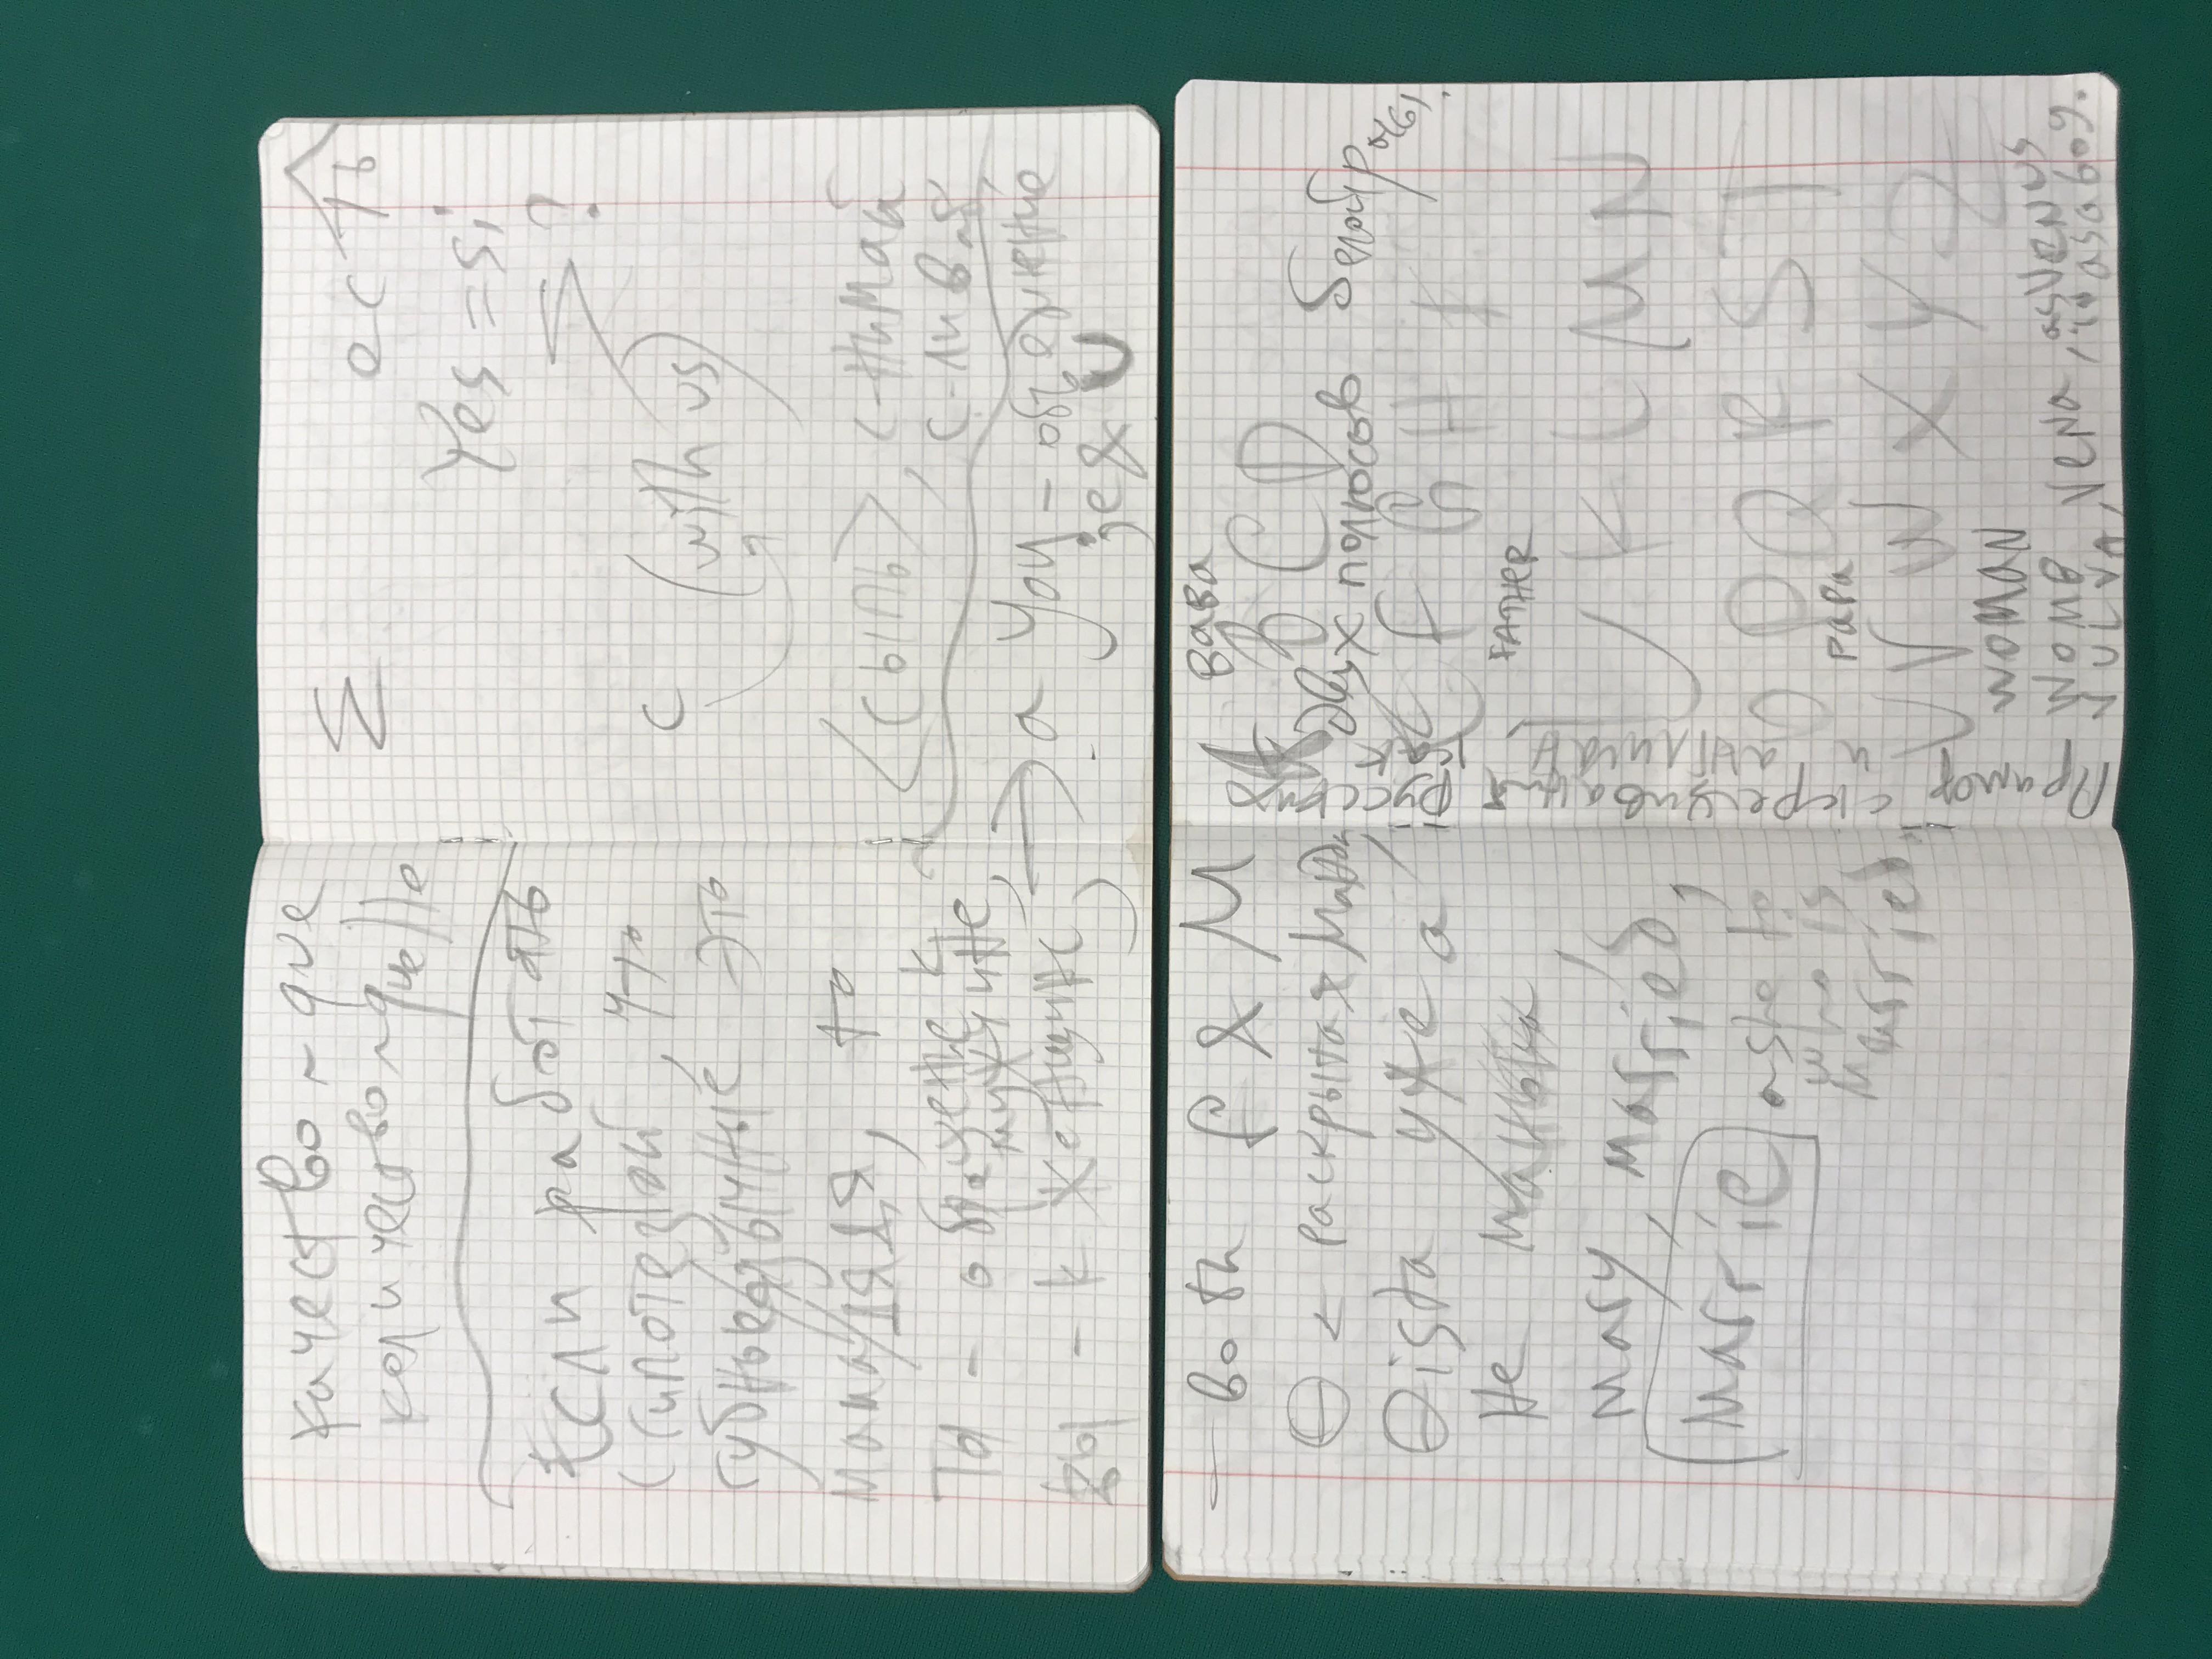 качество ~ que
количество ~ quelle
Если работать
с гипотезой, что
губные/язычные это
мама/дядя, то
ты - обращение к
мужчине,
вы - к женщине,
Σ есть
Yes = si
Σ ?
с (with us)
<сыпь>, с-нимай
с-ливай
→ а you - объединение
е & U
- both f & M
Θ < раскрытая
Θista уже а
не
Mary, married,
Marrie as he to
who is
married.
Прамог скрещивания русския
и англицан, как
вава
A B C D
двух полюсов
E F G H I
FATHER
J K L M N
O P Q R S T
PAPA
U V W X Y Z
WOMAN
WOMB
VULVA, VENA, as VENUS
as a boy.